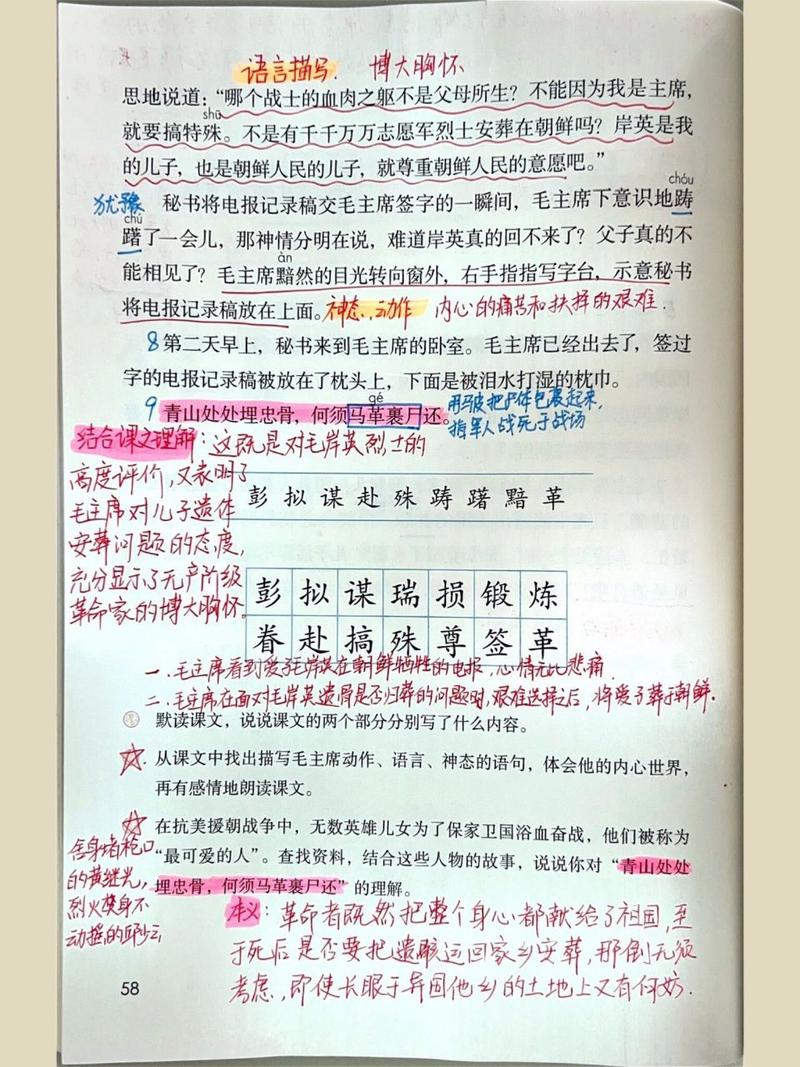 语言描写. 博大胸怀
思地说道：“哪个战士的血肉之躯不是父母所生？不能因为我是主席，
shū
就要搞特殊。不是有千千万万志愿军烈士安葬在朝鲜吗？岸英是我
的儿子，也是朝鲜人民的儿子，就尊重朝鲜人民的意愿吧。”
chóu
犹豫 秘书将电报记录稿交毛主席签字的一瞬间，毛主席下意识地踌
chú
躇了一会儿，那神情分明在说，难道岸英真的回不来了？父子真的不
àn
能相见了？毛主席黯然的目光转向窗外，右手指指写字台，示意秘书
将电报记录稿放在上面。神态、动作 内心的痛苦和抉择的艰难.
8 第二天早上，秘书来到毛主席的卧室。毛主席已经出去了，签过
字的电报记录稿被放在了枕头上，下面是被泪水打湿的枕巾。
gé
9 青山处处埋忠骨，何须马革裹尸还。
用马皮把尸体包裹起来.
指军人战死于战场
结合课文理解：这既是对毛岸英烈士的
高度评价，又表明了
毛主席对儿子遗体
安葬问题的态度，
充分显示了无产阶级
革命家的博大胸怀。
彭 拟 谋 赴 殊 踌 躇 黯 革
彭 拟 谋 瑞 损 锻 炼
眷 赴 搞 殊 尊 签 革
一. 毛主席看到爱子毛岸英在朝鲜牺牲的电报，心情无比悲痛.
二. 毛主席在面对毛岸英遗骨是否归葬的问题时，艰难选择之后，将爱子葬于朝鲜.
默读课文，说说课文的两个部分分别写了什么内容。
从课文中找出描写毛主席动作、语言、神态的语句，体会他的内心世界，
再有感情地朗读课文。
在抗美援朝战争中，无数英雄儿女为了保家卫国浴血奋战，他们被称为
“最可爱的人”。查找资料，结合这些人物的故事，说说你对“青山处处
埋忠骨，何须马革裹尸还”的理解。
舍身堵枪口
的黄继光，
烈火焚身不
动摇的邱少云
本义：革命者既然把整个身心都献给了祖国，至
于死后是否要把遗骸运回家乡安葬，那倒无须
考虑，即使长眠于异国他乡的土地上又有何妨.
58